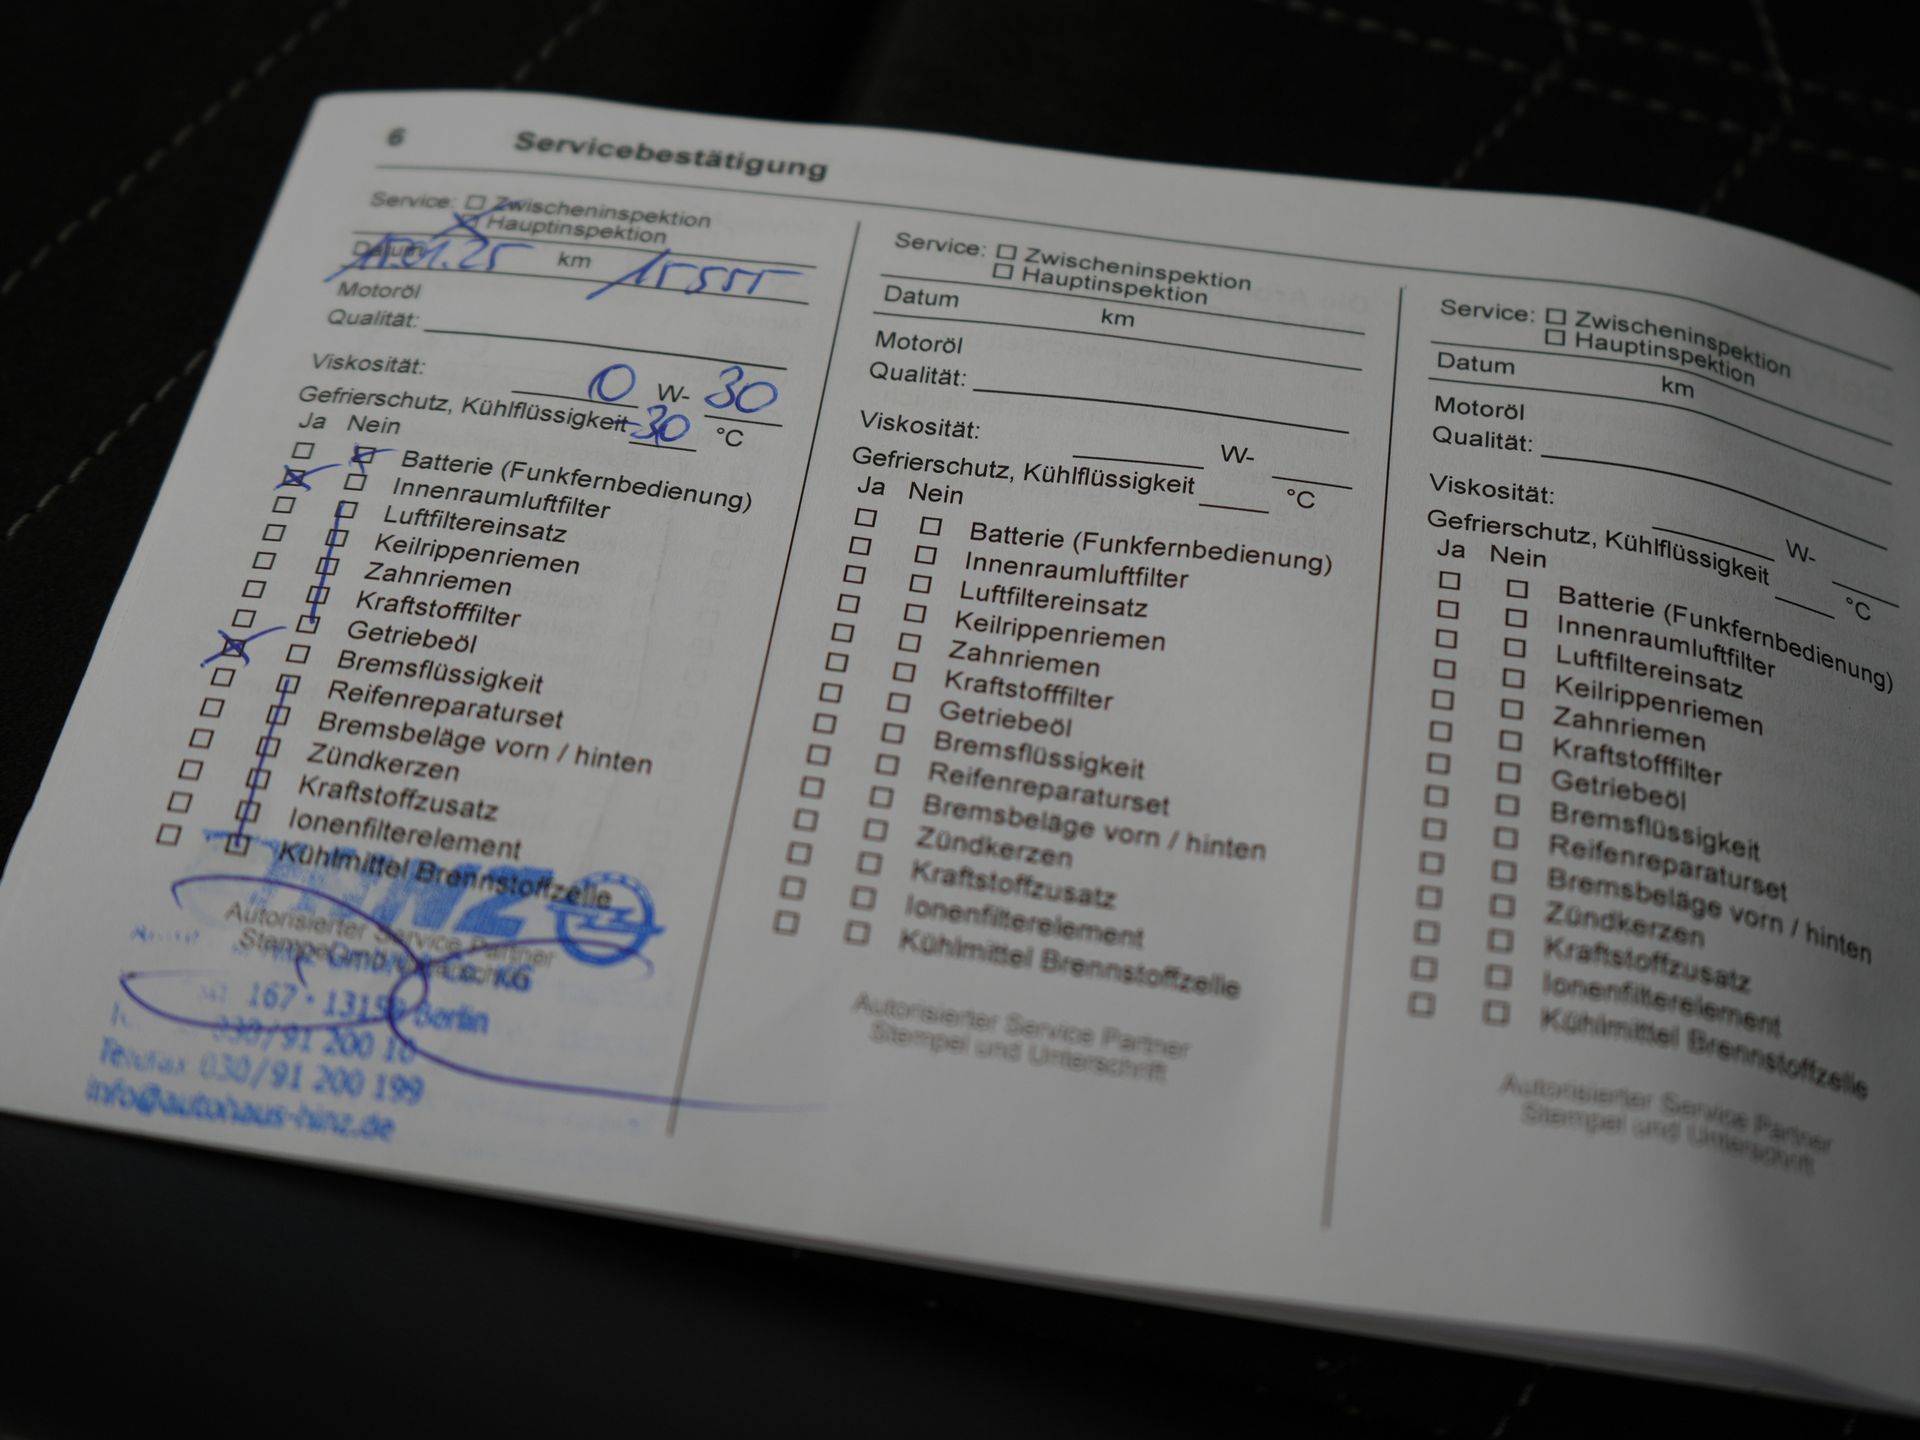 6 Servicebestätigung
Service: Zwischeninspektion
Hauptinspektion
Datum 15.01.25 km 15555
Motoröl
Qualität:
Viskosität: 0 W- 30
Gefrierschutz, Kühlflüssigkeit -30 °C
Ja Nein
Batterie (Funkfernbedienung)
Innenraumluftfilter
Luftfiltereinsatz
Keilrippenriemen
Zahnriemen
Kraftstofffilter
Getriebeöl
Bremsflüssigkeit
Reifenreparaturset
Bremsbeläge vorn / hinten
Zündkerzen
Kraftstoffzusatz
Ionenfilterelement
Kühlmittel Brennstoffzelle
HINZ
Autorisierter Service Partner
Stempel und Unterschrift
GmbH & Co. KG
167 • 13158 Berlin
030/91 200 10
Telefax 030/91 200 199
info@autohaus-hinz.de
Service: Zwischeninspektion
Hauptinspektion
Datum km
Motoröl
Qualität:
Viskosität: W-
Gefrierschutz, Kühlflüssigkeit °C
Ja Nein
Batterie (Funkfernbedienung)
Innenraumluftfilter
Luftfiltereinsatz
Keilrippenriemen
Zahnriemen
Kraftstofffilter
Getriebeöl
Bremsflüssigkeit
Reifenreparaturset
Bremsbeläge vorn / hinten
Zündkerzen
Kraftstoffzusatz
Ionenfilterelement
Kühlmittel Brennstoffzelle
Autorisierter Service Partner
Stempel und Unterschrift
Service: Zwischeninspektion
Hauptinspektion
Datum km
Motoröl
Qualität:
Viskosität: W-
Gefrierschutz, Kühlflüssigkeit °C
Ja Nein
Batterie (Funkfernbedienung)
Innenraumluftfilter
Luftfiltereinsatz
Keilrippenriemen
Zahnriemen
Kraftstofffilter
Getriebeöl
Bremsflüssigkeit
Reifenreparaturset
Bremsbeläge vorn / hinten
Zündkerzen
Kraftstoffzusatz
Ionenfilterelement
Kühlmittel Brennstoffzelle
Autorisierter Service Partner
Stempel und Unterschrift